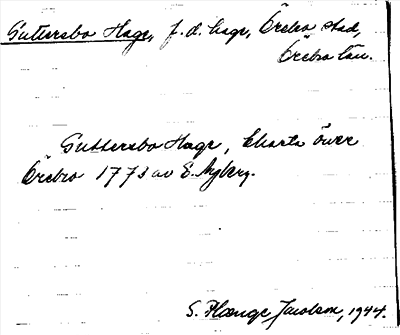 Guttersbo Hage, f.d. hage, Örebro stad,
Örebro län.
Guttersbo Hage, Charta över
Örebro 1773 av E. Nyberg.
S. Jacobson, 1944.